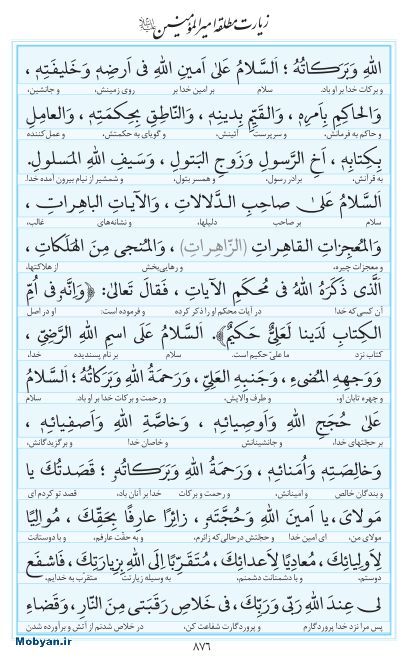 زیارت مطلقه امیرالمؤمنین
اللهِ وَبَرَكاتُهُ ؛ اَلسَّلامُ عَلىٰ اَمينِ اللهِ فى اَرضِهِ وَخَليفَتِهِ ،
و برکات خدا بر او باد. سلام بر امین خدا بر روی زمینش، و جانشین،
وَالحاكِمِ بِاَمرِهِ ، وَالقَيِّمِ بِدينِهِ، وَالنّاطِقِ بِحِكمَتِهِ ، وَالعامِلِ
و حاکم به فرمانش، و سرپرست آئینش، و گویای به حکمتش، و عمل‌کننده
بِكِتابِهِ ، اَخِ الرَّسولِ وَزَوجِ البَتولِ ، وَسَيفِ اللهِ المَسلولِ.
به قرآنش، برادر رسول، و همسر بتول، و شمشیر از نیام بیرون آمده خدا.
اَلسَّلامُ عَلىٰ صاحِبِ الدَّلالاتِ ، وَالآياتِ الباهِراتِ ،
سلام بر صاحب دلیلها، و نشانه‌های غالب،
وَالمُعجِزاتِ القاهِراتِ (الزّاهِراتِ) ، وَالمُنجى مِنَ الهَلَكاتِ ،
و معجزات چیره، و رهایی‌بخش از هلاکتها،
اَلَّذى ذَكَرَهُ اللهُ فى مُحكَمِ الآياتِ ، فَقالَ تَعالىٰ: ﴿وَاِنَّهُ فى اُمِّ
آن کسی که خدا در آیات محکم او را ذکر کرده و فرموده است: او در اصل
الكِتابِ لَدَينا لَعَلِىٌّ حَكيمٌ﴾. اَلسَّلامُ عَلَى اسمِ اللهِ الرَّضِىِّ ،
کتاب نزد ما علیّ حکیم است. سلام بر نام پسندیده خدا،
وَوَجهِهِ المُضىءِ ، وَجَنبِهِ العَلِىِّ ، وَرَحمَةُ اللهِ وَبَرَكاتُهُ ؛ اَلسَّلامُ
و چهره تابان او، و طرف والایش، و رحمت و برکات خدا بر او باد. سلام
عَلىٰ حُجَجِ اللهِ وَاَوصِيائِهِ ، وَخاصَّةِ اللهِ وَاَصفِيائِهِ ،
بر حجّتهای خدا، و جانشینانش و خاصان خدا و برگزیدگانش،
وَخالِصَتِهِ وَاُمَنائِهِ ، وَرَحمَةُ اللهِ وَبَرَكاتُهُ ؛ قَصَدتُكَ يا
و بندگان خالص و امینانش، و رحمت و برکات خدا بر آنان باد، قصد تو کردم ای
مَولاىَ، يا اَمينَ اللهِ وَحُجَّتَهُ، زائِرًا عارِفًا بِحَقِّكَ، مُوالِيًا
مولای من، ای امین خدا و حجّتش در حالی که زائرم، و به حقّت عارفم، و با دوستانت
لِاَولِيائِكَ، مُعادِيًا لِاَعدائِكَ، مُتَقَرِّبًا اِلَى اللهِ بِزِيارَتِكَ، فَاشفَع
دوستم، و با دشمنانت دشمنم، به وسیله زیارتت متقرب به خدایم،
لى عِندَ اللهِ رَبّى وَرَبِّكَ، فى خَلاصِ رَقَبَتى مِنَ النّارِ، وَقَضاءِ
پس مرا نزد خدا پروردگارم و پروردگارت شفاعت کن، در خلاص شدنم از آتش و برآورده شدن
۸۷۶
Mobyan.ir